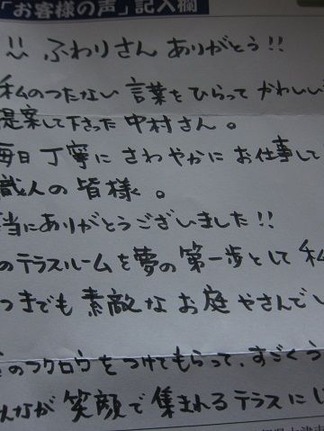 「お客様の声」記入欄
!! ふわりさん ありがとう!!
私のつたない 言葉をひろって かわいい
提案して下さった 中村さん。
毎日 丁寧に さわやかに お仕事して
職人の 皆様 。
当にありがとうございました!!
のテラスルームを夢の 第一歩として 私
つまでも 素敵な お庭 やさんでい
のフクロウ をつけてもらって、すごくう
んなが 笑顔で 集まれるテラスにし